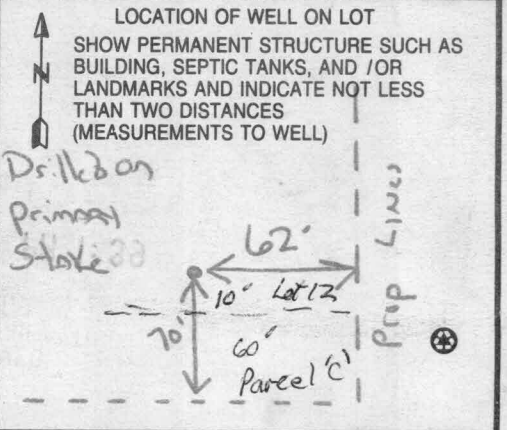 LOCATION OF WELL ON LOT
SHOW PERMANENT STRUCTURE SUCH AS
BUILDING, SEPTIC TANKS, AND /OR
LANDMARKS AND INDICATE NOT LESS
THAN TWO DISTANCES
(MEASUREMENTS TO WELL)
N
Drilled on
primary
Stake
62'
10' Lot 12
70'
60'
Parcel 'C'
Prop Lines